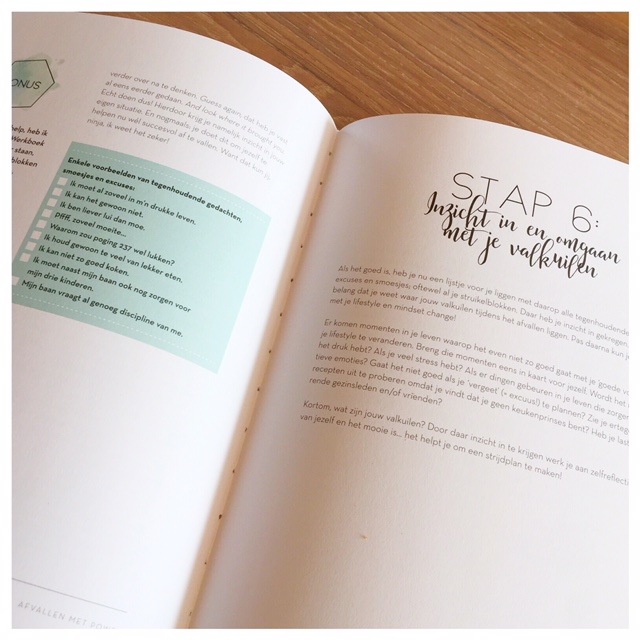 ONUS
help, heb ik
Werkboek
staan,
blokken
verder over na te denken. Guess again, dat heb je niet
al eens eerder gedaan. And look where it brought you.
Echt doen dus! Hierdoor krijg je namelijk inzicht in jouw
eigen situatie. En nogmaals: je doet dit om jezelf te
helpen nu wél succesvol af te vallen. Want dat kun jij
ninja, ik weet het zeker!
Enkele voorbeelden van tegenhoudende gedachten,
smoesjes en excuses:
Ik moet al zoveel in m'n drukke leven.
Ik kan het gewoon niet.
Ik ben liever lui dan moe.
Pffff, zoveel moeite...
Waarom zou poging 237 wel lukken?
Ik houd gewoon te veel van lekker eten.
Ik kan niet zo goed koken.
Ik moet naast mijn baan ook nog zorgen voor
mijn drie kinderen.
Mijn baan vraagt al genoeg discipline van me.
AFVALLEN MET
STAP 6:
Inzicht in en omgaan
met je valkuilen
Als het goed is, heb je nu een lijstje voor je liggen met daarop alle tegenhoudende
excuses en smoesjes, oftewel al je struikelblokken. Daar heb je inzicht in gekregen.
belang dat je weet waar jouw valkuilen tijdens het afvallen liggen. Pas daarna kun je
met je lifestyle en mindset change!
Er komen momenten in je leven waarop het even niet zo goed gaat met je 'goede vo
je lifestyle te veranderen. Breng die momenten eens in kaart voor jezelf. Wordt het
het druk hebt? Als je veel stress hebt? Als er dingen gebeuren in je leven die zorgen
tieve emoties? Gaat het niet goed als je 'vergeet' (= excuus!) te plannen? Zie je ertege
recepten uit te proberen omdat je vindt dat je geen keukenprinses bent? Heb je last
rende gezinsleden en/of vrienden?
Kortom, wat zijn jouw valkuilen? Door daar inzicht in te krijgen werk je aan zelfreflecti
van jezelf en het mooie is... het helpt je om een strijdplan te maken!